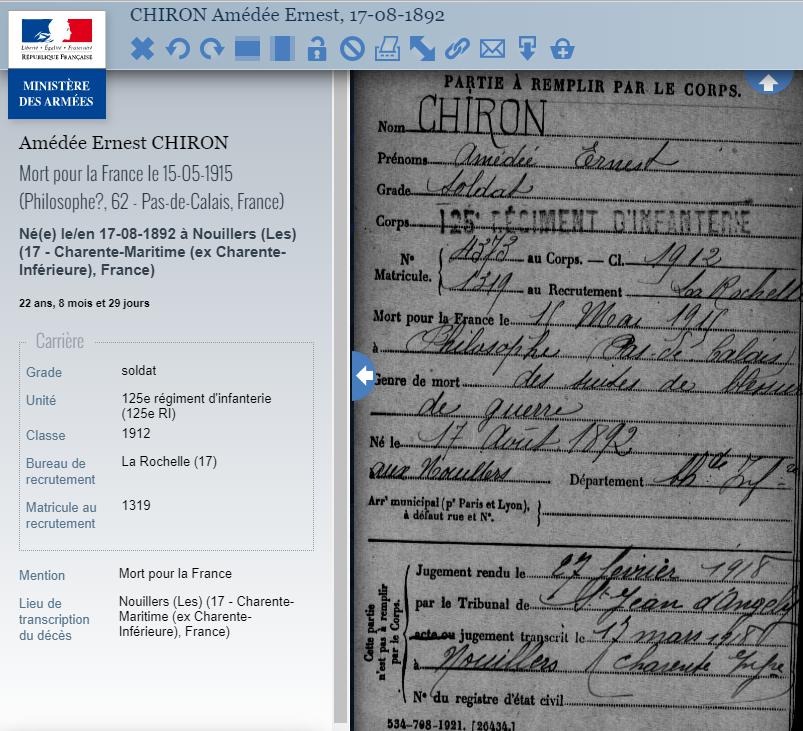 CHIRON Amédée Ernest, 17-08-1892
Liberté • Égalité • Fraternité
RÉPUBLIQUE FRANÇAISE
MINISTÈRE
DES ARMÉES
Amédée Ernest CHIRON
Mort pour la France le 15-05-1915
(Philosophe?, 62 - Pas-de-Calais, France)
Né(e) le/en 17-08-1892 à Nouillers (Les)
(17 - Charente-Maritime (ex Charente-
Inférieure), France)
22 ans, 8 mois et 29 jours
Carrière
Grade soldat
Unité 125e régiment d'infanterie
(125e RI)
Classe 1912
Bureau de La Rochelle (17)
recrutement
Matricule au 1319
recrutement
Mention Mort pour la France
Lieu de Nouillers (Les) (17 - Charente-
transcription Maritime (ex Charente-
du décès Inférieure), France)
PARTIE À REMPLIR PAR LE CORPS.
Nom CHIRON
Prénoms Amédée Ernest
Grade Soldat
Corps 125e RÉGIMENT D'INFANTERIE
N° 4373 au Corps. — Cl. 1912
Matricule. 1319 au Recrutement La Rochelle
Mort pour la France le 15 Mai 1915
à Philosophe (Pas-de Calais)
Genre de mort des suites de blessures
de guerre
Né le 17 Août 1892
aux Nouillers Département Ch.te Inf.re
Arr' municipal (p' Paris et Lyon),
à défaut rue et N°.
Cette partie
n'est pas à remplir
par le Corps.
Jugement rendu le 27 février 1918
par le Tribunal de St Jean d'Angely
acte ou jugement transcrit le 13 mars 1918
à Nouillers (Charente Infre
N° du registre d'état civil
534-708-1921. [26434.]